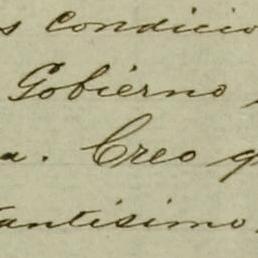 s condicio
Gobierno
a. Creo q
tantisimo